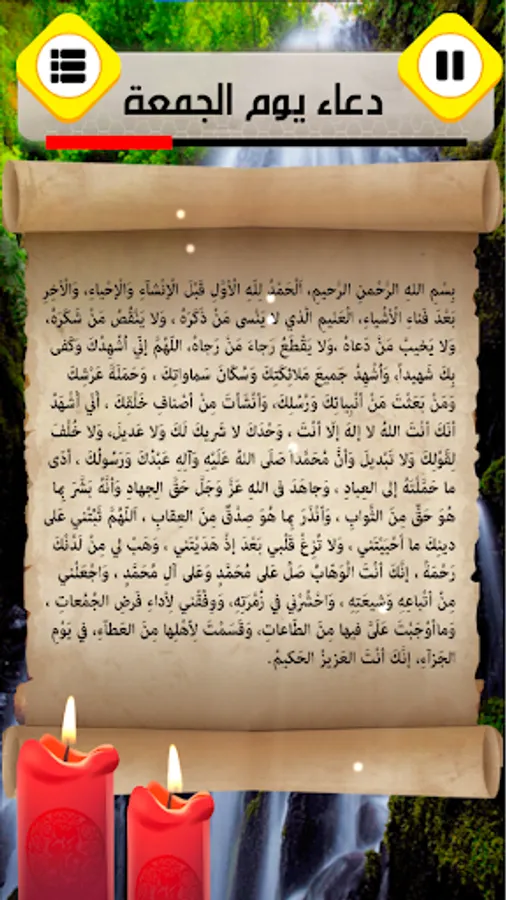 دعاء يوم الجمعة
بِسْمِ اللهِ الرَّحْمنِ الرَّحيمِ، اَلْحَمْدُ للهِ الْأَوَّلِ قَبْلَ الْإِنْشآءِ وَالْإِحْياءِ، وَالْآخِرِ
بَعْدَ فَناءِ الْأَشْياءِ، الْعَليمِ الَّذي لا يَنْسى مَنْ ذَكَرَهُ ، وَلا يَنْقُصُ مَنْ شَكَرَهُ،
وَلا يَخيبُ مَنْ دَعاهُ ،وَلا يَقْطَعُ رَجاءَ مَنْ رَجاهُ، اللهُمَّ إنّي اُشْهِدُكَ وَكَفى
بِكَ شَهيداً، وَاُشْهِدُ جَميعَ مَلائكَتِكَ وَسُكّانَ سَماواتِكَ ، وَحَمَلَةَ عَرْشِكَ
وَمَنْ بَعَثْتَ مِنْ أَنْبِيائِكَ وَرُسُلِكَ، وَأَنْشَأتَ مِنْ أَصْنافِ خَلْقِكَ ، أنّي أَشْهَدُ
أنّكَ أنْتَ اللهُ لا إلهَ إلّا أنْتَ ، وَحْدَكَ لا شَريكَ لَكَ وَلا عَديلَ، وَلا خُلْفَ
لِقَوْلِكَ وَلا تَبْديلَ وَأنَّ مُحَمَّداً صَلّى اللهُ عَلَيْهِ وَآلِهِ عَبْدُكَ وَرَسُولُكَ ، أدّى
ما حَمَّلْتَهُ إلى العِبادِ ، وَجاهَدَ في اللهِ عَزَّ وَجَلَّ حَقَّ الجِهادِ وَأنَّهُ بَشَّرَ بِما
هُوَ حَقٌّ مِنَ الثَّوابِ ، وَأنْذَرَ بِما هُوَ صِدْقٌ مِنَ العِقابِ ، اَللهُمَّ ثَبِّتْني عَلى
دينِكَ ما أحْيَيْتَني ، وَلا تُزِغْ قَلْبي بَعْدَ إذْ هَدَيْتَني ، وَهَبْ لي مِنْ لَدُنْكَ
رَحْمَةً ، إنّكَ أنْتَ الْوَهّابُ صَلِّ عَلى مُحَمَّدٍ وَعَلى آلِ مُحَمَّدٍ ، وَاجْعَلْني
مِنْ أتْباعِهِ وَشيعَتِهِ ، وَاحْشُرْني في زُمْرَتِهِ، وَوَفِّقْني لِأداءِ فَرضِ الجُمُعاتِ ،
وَماأوْجَبْتَ عَلَيَّ فيها مِنَ الطّاعاتِ، وَقَسَمْتَ لِأهْلِها مِنَ العَطآءِ، في يَوْمِ
الجَزآءِ، إنّكَ أنْتَ العَزيزُ الحَكيمُ.